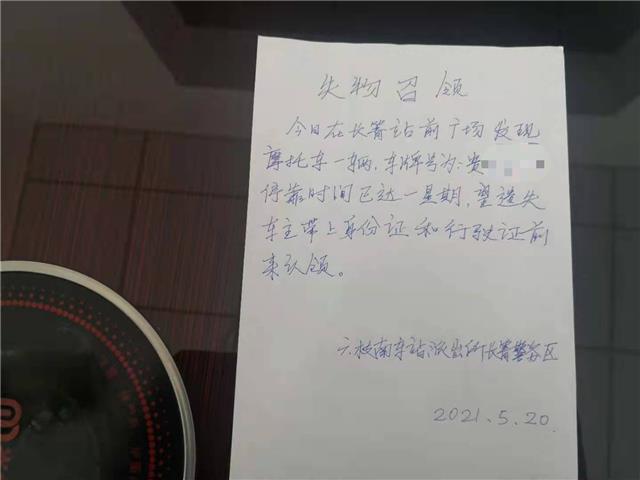 失物召领
今日在长箐站前广场发现
摩托车一辆,车牌号为:贵
停靠时间已达一星期,望遗失
车主带上身份证和行驶证前
来认领。
六枝南车站派出所长箐警务区
2021.5.20.